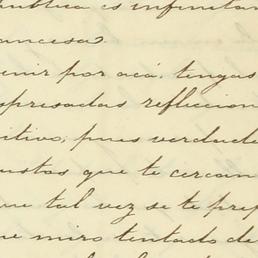 publica es infinitam
ancesa.
enir por acá, tengas
spresadas refleccion
itivo, pues verdade
ustos que te cercan
ue tal vez se te prep
ue miro tentado de